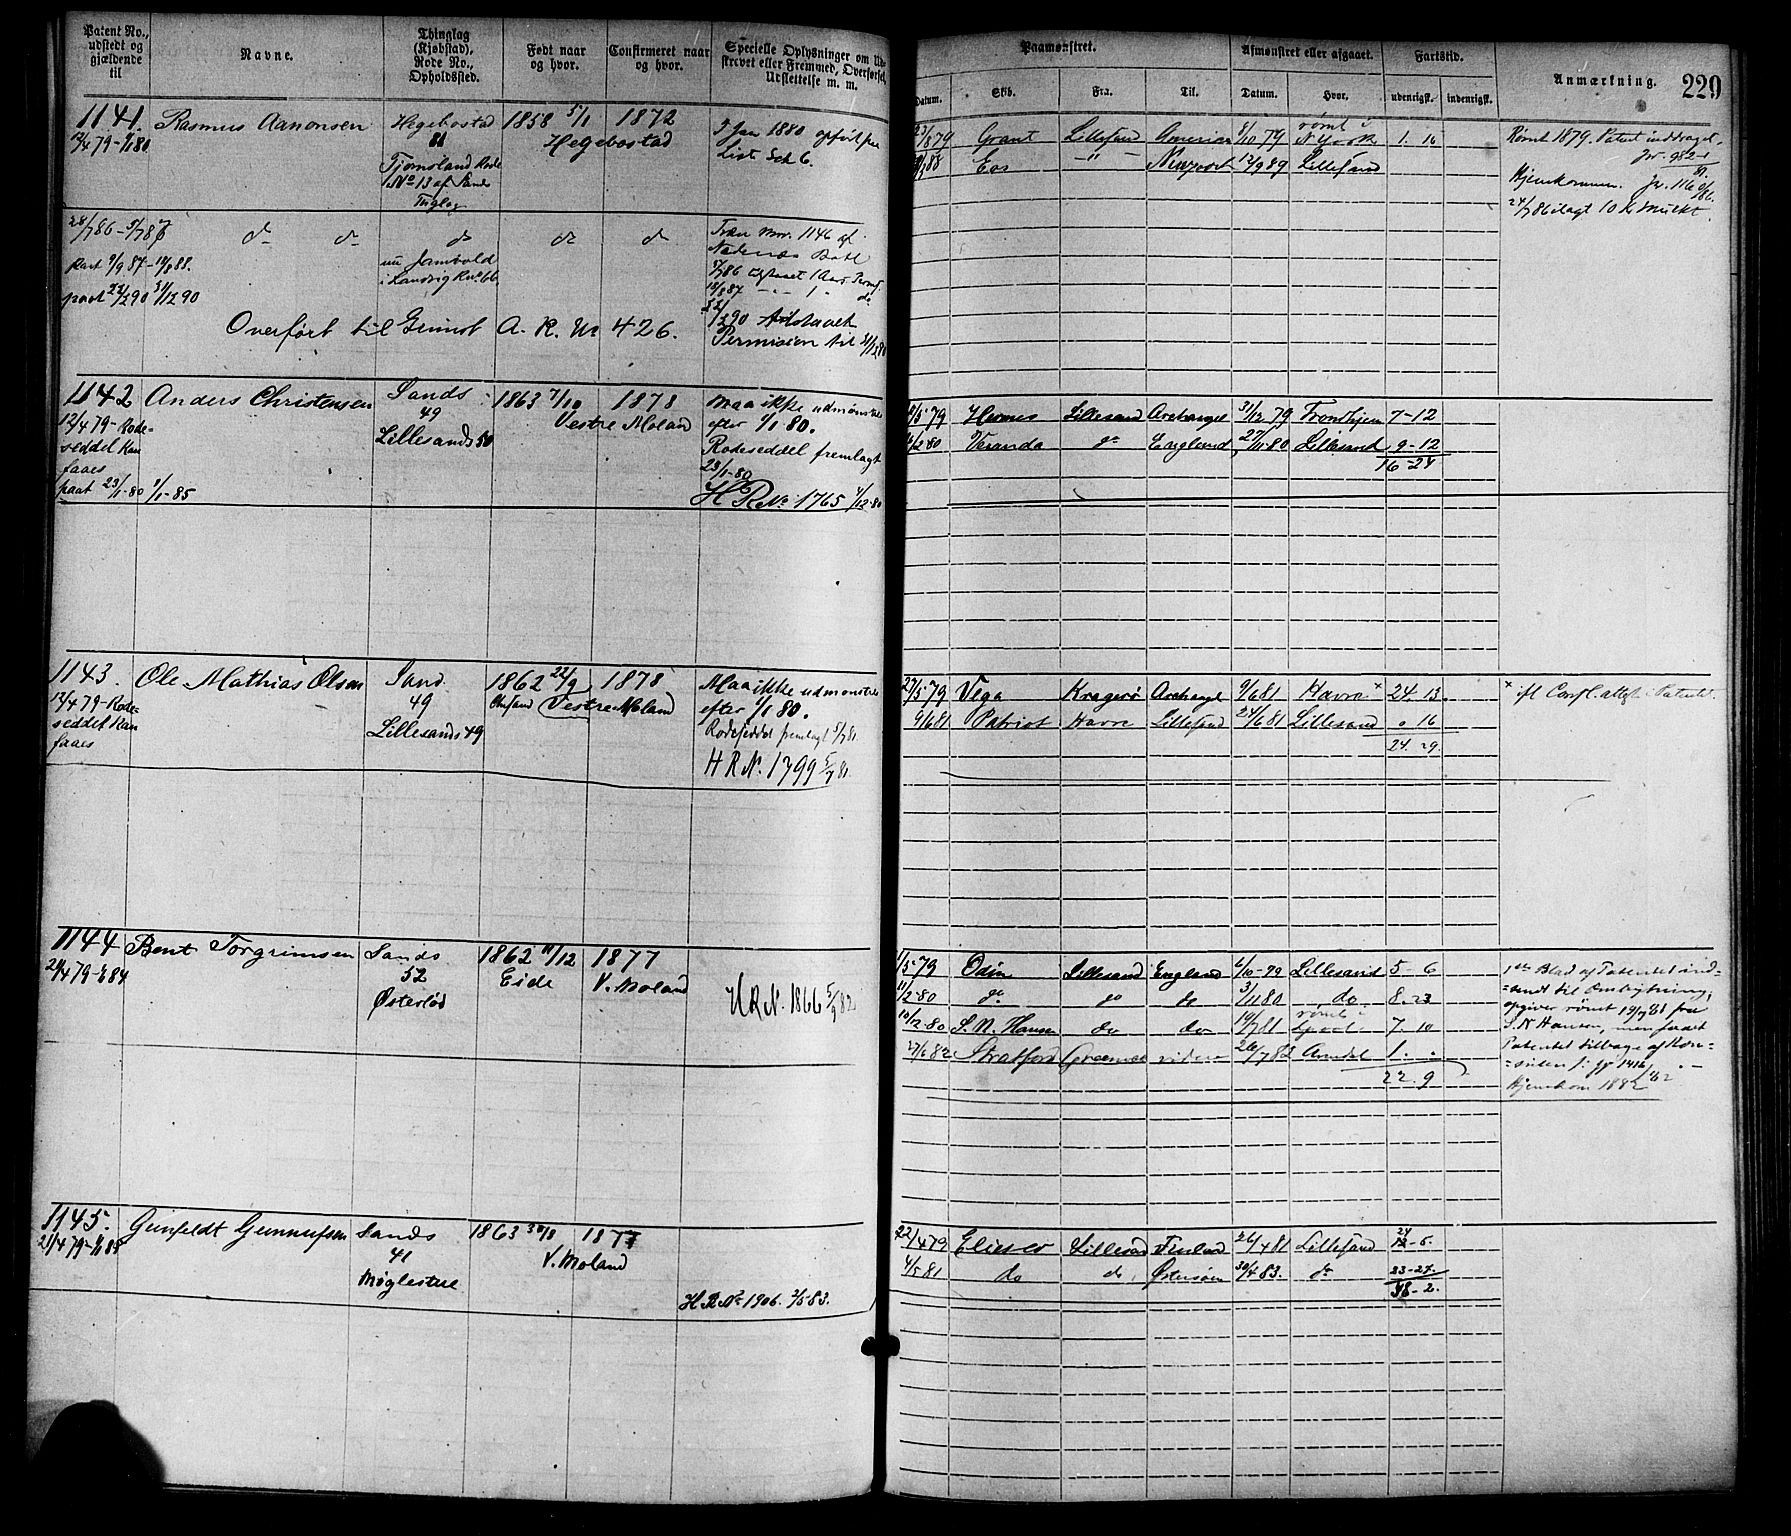 Patent No., udstedt og gjældende til
Navne.
Thinglag (Kjøbstad), Rode No., Opholdssted.
Født naar og hvor.
Confirmeret naar og hvor.
Specielle Oplysninger om Ud-
skrevet eller Fremmed, Overførsel,
Udslettelse m. m.
1141. Rasmus Aanonsen Hegebostad 1858 5/1 1872
12/4 79-1/1 80 81 Hegebostad
Tjomsland Rode
No 13 af Sands
Tinglag
I Jan 1880 opført fra
List Sch 6.
28/7 86 - 5/7 87 d- d- do do do
nu Jambold
i Landvig
paat 9/9 87 - 18/8 88.
paat 22/2 90 31/12 90
1146 af
Nedenæs
1 Aar
Permission til 31/12 90
Overført til Grimst A. R. Nr 426.
1142 Anders Christensen Sands 1863 7/10 1878
12/4 79- Rode- 49 Vestre Moland
seddel kan Lillesands 50
faaes
paat 23/1-80 1/1-85
Maa ikke udmønstres
efter 1/1 80.
Rodeseddel fremlagt
23/1-80
H R No 1765 4/12-80
1143. Ole Mathias Olsen Sand 1862 22/9 1878
12/4 79- Rode- 49 Vestre Moland
seddel kan Lillesands 49
faaes
Maa ikke udmønstres
efter 1/1 80.
Rodeseddel fremlagt 5/7 81.
H R N. 1799 5/7 81.
1144 Bent Torgrimsen Sands 1862 11/12 1877
52 Eide V. Moland
Østerlød
H R N. 1866 5/9 82
1145. Gunfeldt Gunnufsen Sands 1863 30/8 1877
41 V. Moland
Møglestue
H. R No 1906. 2/5 83.
Paamønstret.
Afmønstret eller afgaaet.
Fartstid.
Anmærkning. 220
Datum. Skib. Fra. Til. Datum. Hvor. udenrigsk. indenrigsk.
23/8 79 Grant Lillesand America 8/10 79 rømt i N York 1. 16
Eos -"- Newport 13/9 89 Lillesand
Rømt 1879. Patent inddraget
Jr. 982
Hjemkommen. Jr. 116
24/7 86 ilagt 10 Kr Mulkt.
79 Hermes Lillesand Archangel 31/12 79 Trondhjem 7-12
80 Veranda do England 27/11-80 Lillesand 9-12
16-24
27/5 79 Vega Kragerø Archangel 9/6 81 Havre × 24. 13
9/6 81 Patriot Havre Lillesand 24/6 81 Lillesand " 16
24. 29.
1/5 79 Odin Lillesand England 6/10-79 Lillesand 5-6
11/2-80 do do do 3/11 80 do 8-23
10/12-80 S. N. Hansen do do 19/7 81 rømt i 7. 10
27/6 82 Stratford videre 26/7 82 Arendal 1. "
22. 9
1ste Blad af Patentet ind-
=sendt til Ombytning,
opgiver rømt 19/7 81 fra
S. N Hansen, men faaet
Patentet tilbage af Kon-
=sulen Jr 1416
Hjemkom 1882
22/4 79 Elieser Lillesand 26/4 81 Lillesand
4/5 81 do do Østersøen 30/4 83. do 23-27
48-2.